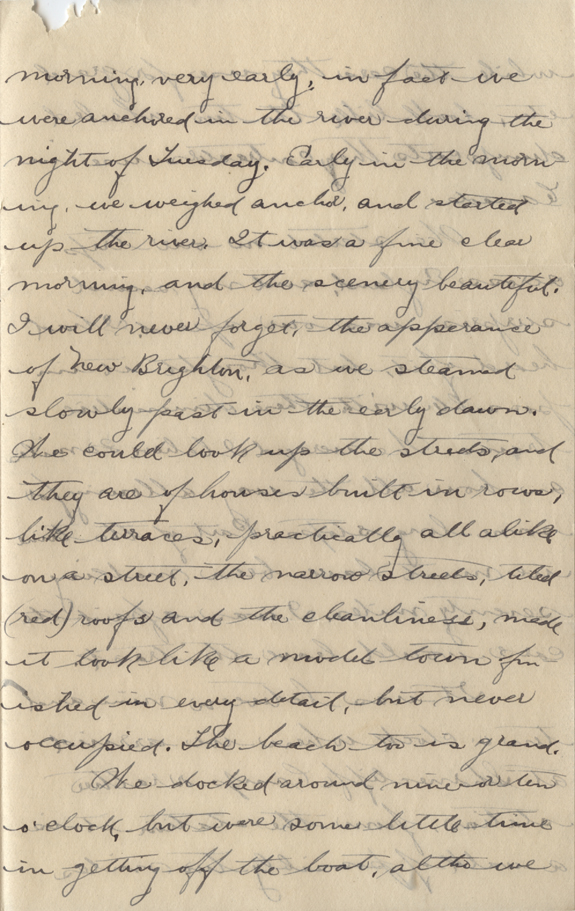 morning, very early, in fact we
were anchored in the river during the
night of Tuesday. Early in the morn-
ing, we weighed anchor, and started
up the river. It was a fine clear
morning, and the scenery beautiful.
I will never forget, the apperance
of New Brighton, as we steamed
slowly past in the early dawn.
We could look up the streets, and
they are of houses built in rows,
like terraces, practically all alike
on a street, the narrow streets, tiled
(red) roofs and the cleanliness, made
it look like a model town fin
ished in every detail, but never
occupied. The beach too is grand.
We docked around nine or ten
o'clock, but were some little time
in getting off the boat, altho we